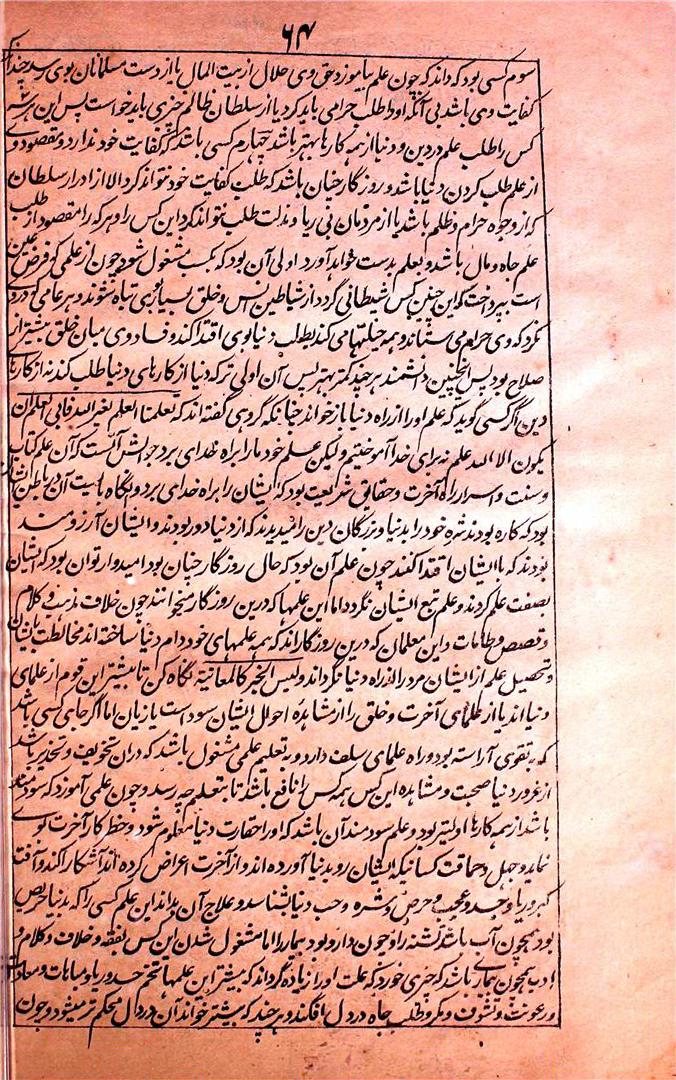 ۶۴
سوم کسی بود که داند که چون علم بیاموزد حق وی حلال از بیت المال یا از دست مسلمانان بوی رسد چندانکه
کفایت وی باشد بی آنکه او را طلب حرامی باید کرد یا از سلطان ظالم چیزی باید خواست پس این هر سه
کس را طلب علم در دین و دنیا از همه کارها بهتر باشد چهارم کسی باشد که کفایت خود ندارد و مقصود وی
از علم طلب کردن دنیا باشد و روزگار چنان باشد که طلب کفایت خود نتواند کرد الا از ادرار سلطان
که از وجوه حرام و ظلم باشد یا از مردمان بی ریا و مذلت طلب نتواند کرد این کس را و هر که را مقصود از طلب
علم جاه و مال باشد و بعلم بدست خواهد آورد اولی آن بود که بکسب مشغول شود چون از علمی که فرض عین
است بپرداخت که این چنین کس شیطانی گردد از شیاطین انس و خلق بسیار بوی تباه شوند و هر عامی که در وی
نگرد که وی حرام می ستاند و همه حیلتها می کند بطلب دنیا بوی اقتدا کند و فساد وی میان خلق بیشتر از
صلاح بود پس اینچنین دانشمند هر چند کمتر بهتر پس آن اولی تر که دنیا از کارهای دنیا طلب کند نه از کارهای
دین اگر کسی گوید که علم او را از راه دنیا باز خواند چنانکه گروهی گفته اند که تعلمنا العلم لغیر الله فابی العلم ان
یکون الا لله علم نه برای خدا آموختیم ولیکن علم خود ما را براه خدای برد جوابش آنست که آن علم کتاب
و سنت و اسرار راه آخرت و حقایق شریعت بود که ایشان را براه خدای برد و آنگاه بایست آن در باطن ایشان
بود که کاره بودند شره خود را بدنیا و بزرگان دین را میدیدند که از دنیا دور بودند و ایشان آرزومند
بودند که با ایشان اقتدا کنند چون علم آن بود که حال روزگار چنان بود امیدوار توان بود که ایشان
بصفت علم گردند و علم تبع ایشان نگردد اما این علمها که درین روزگار میخوانند چون خلاف مذهب و کلام
و قصص و طامات و این معلمان که درین روزگار اند که همه علمهای خود دام دنیا ساخته اند مخالطت با ایشان
و تحصیل علم از ایشان مرد را از راه دنیا نگرداند ولیس الخبر کالمعاینة نگاه کن تا بیشتر این قوم از علمای
دنیا اند یا از علمای آخرت و خلق را از مشاهده احوال ایشان سود است یا زیان اما اگر جای کسی باشد
که بتقوی آراسته بود و راه علمای سلف دارد و بتعلیم علمی مشغول باشد که در آن تخویف و تحذیر باشد
از غرور دنیا صحبت و مشاهده این کس همه کس را نافع باشد تا بتعلیم چه رسد و چون علمی آموزد که سودمند
باشد از همه کارها اولیتر بود و علم سودمند آن باشد که او را حقارت دنیا معلوم شود و خطر کار آخرت بوی
نماید و جهل و حماقت کسانیکه ایشان رو بدنیا آورده اند و از آخرت اعراض کرده اند آشکارا کند و آفت
کبر و ریا و حسد و عجب و حرص و شره و حب دنیا بشناسد و علاج آن بداند این علم کسی را که بدنیا حریص
بود همچون آب باشد تشنه را و چون دارو بود بیمار را اما مشغول شدن این کس بفقه و خلاف و کلام و
ادب همچون بیماری باشد که چیزی خورد که علت او را زیاده گرداند که بیشتر این علمها تخم حسد و ریا و مباهات و معادات
و رعونت و تشوف و مکر و طلب جاه در دل افکند و هر چند که بیشتر خواند آن در دل محکم تر میشود و چون